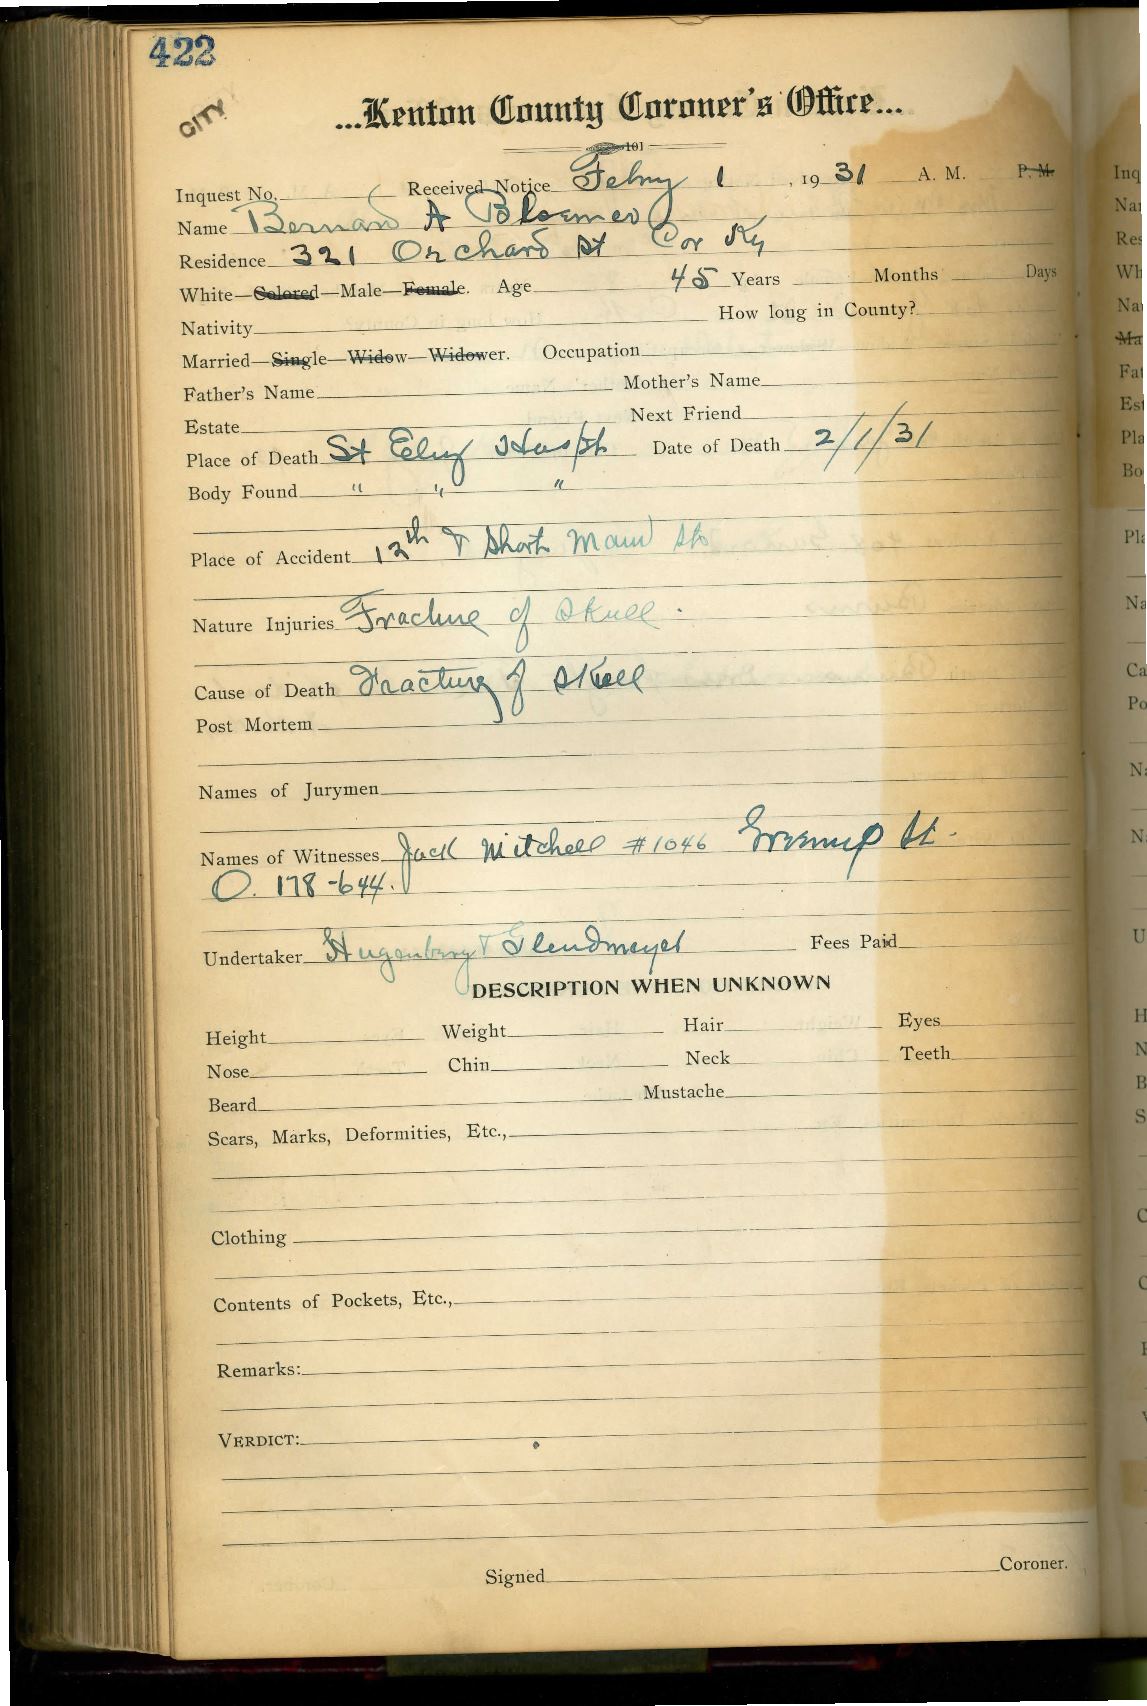 422
CITY
...Kenton County Coroner's Office...
101
Inquest No. Received Notice Febry 1, 1931 A. M. P. M.
Name Bernard A Bloemer
Residence 321 Orchard St Cov Ky
White—Colored—Male—Female. Age 45 Years Months Days
Nativity How long in County?
Married—Single—Widow—Widower. Occupation
Father's Name Mother's Name
Estate Next Friend
Place of Death St Eliz Hospt Date of Death 2/1/31
Body Found " " "
Place of Accident 12th & Short Main Sts
Nature Injuries Fracture of Skull.
Cause of Death Fracture of Skull
Post Mortem
Names of Jurymen
Names of Witnesses Jack Mitchell #1046 Greenup St.
O. 178-644.
Undertaker Hugenberg & Glendmeyer Fees Paid
DESCRIPTION WHEN UNKNOWN
Height Weight Hair Eyes
Nose Chin Neck Teeth
Beard Mustache
Scars, Marks, Deformities, Etc.,
Clothing
Contents of Pockets, Etc.,
Remarks:
VERDICT:
Signed Coroner.